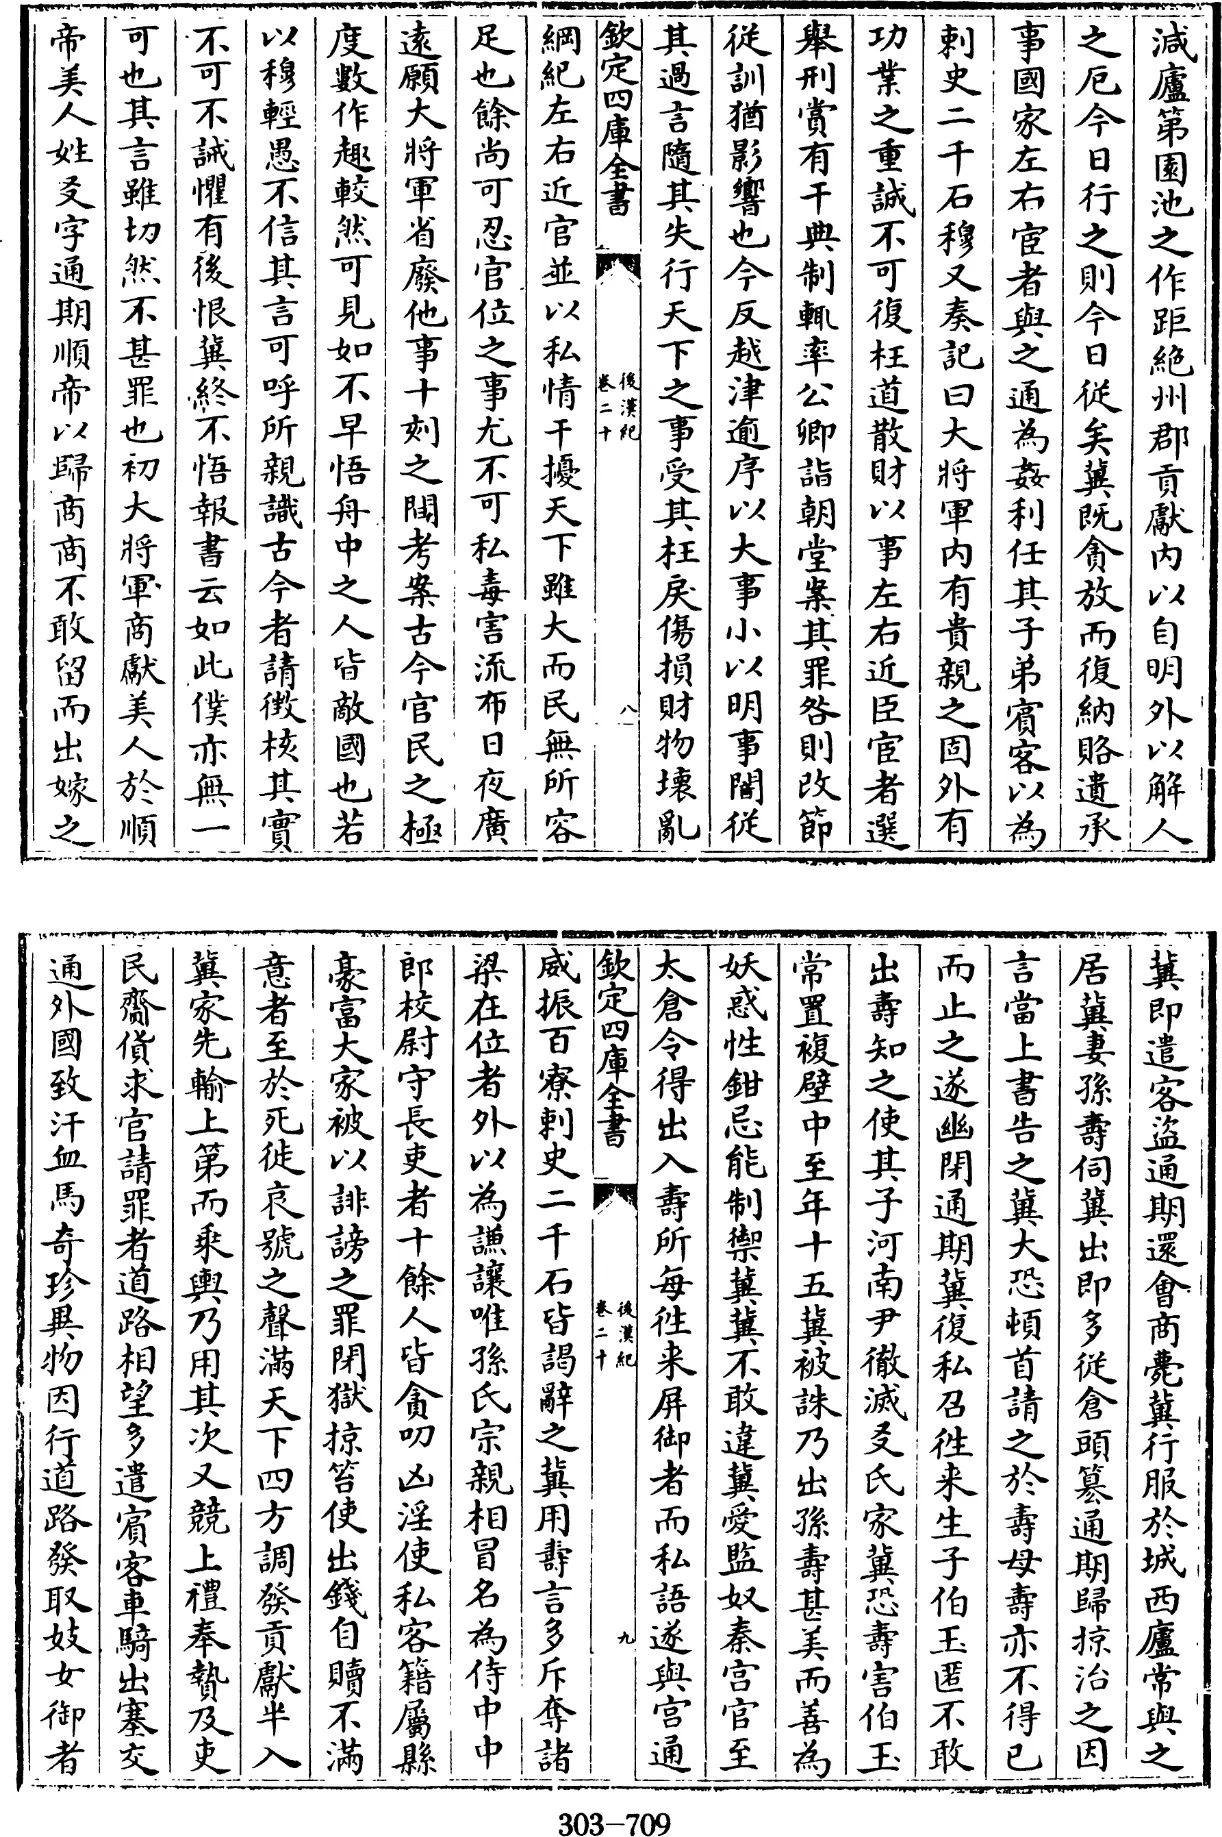 減廬第園池之作距絶州郡貢獻内以自明外以解人
之厄今日行之則今日從矣冀既貪放而復納賂遺承
事國家左右宦者與之通為姦利任其子弟賓客以為
刺史二千石穆又奏記曰大將軍内有貴親之固外有
功業之重誠不可復枉道散財以事左右近臣宦者選
舉刑賞有干典制輒率公卿詣朝堂案其罪咎則改節
從訓猶影響也今反越津逾序以大事小以明事闇從
其過言隨其失行天下之事受其枉戾傷損財物壞亂
欽定四庫全書
後漢紀
卷二十
八
綱紀左右近官並以私情干擾天下雖大而民無所容
足也餘尚可忍官位之事尤不可私毒害流布日夜廣
遠願大將軍省廢他事十刻之間考案古今官民之極
度數作趣較然可見如不早悟舟中之人皆敵國也若
以穆輕愚不信其言可呼所親識古今者請徴核其實
不可不誡懼有後恨冀終不悟報書云如此僕亦無一
可也其言雖切然不甚罪也初大將軍商獻美人於順
帝美人姓友字通期順帝以歸商商不敢留而出嫁之
冀即遣客盜通期還會商薨冀行服於城西廬常與之
居冀妻孫壽伺冀出即多從倉頭篡通期歸掠治之因
言當上書告之冀大恐頓首請之於壽母壽亦不得已
而止之遂幽閉通期冀復私召徃來生子伯玉匿不敢
出壽知之使其子河南尹徹滅友氏家冀恐壽害伯玉
常置複壁中至年十五冀被誅乃出孫壽甚美而善為
妖惑性鉗忌能制禦冀冀不敢違冀愛監奴秦宫官至
太倉令得出入壽所每徃来屏御者而私語遂與宫通
欽定四庫全書
後漢紀
卷二十
九
威振百寮刺史二千石皆謁辭之冀用壽言多斥奪諸
梁在位者外以為謙讓唯孫氏宗親相冒名為侍中中
郎校尉守長吏者十餘人皆貪叨凶淫使私客籍屬縣
豪富大家被以誹謗之罪閉獄掠笞使出錢自贖不滿
意者至於死徙哀號之聲滿天下四方調發貢獻半入
冀家先輸上第而乘輿乃用其次又競上禮奉贄及吏
民齎貨求官請罪者道路相望多遣賓客車騎出塞交
通外國致汗血馬奇珍異物因行道路發取妓女御者
303-709